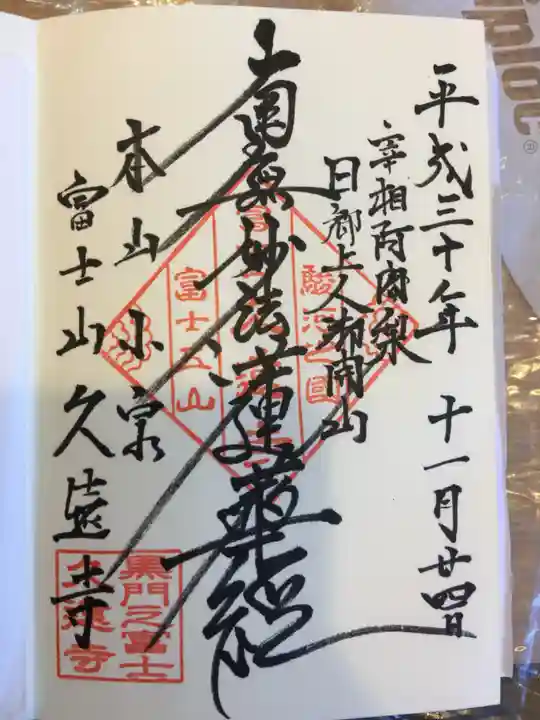 平成三十年 十一月廿四日
宰相阿闍梨
日郷上人御開山
南無妙法蓮華経
本山小泉
富士山久遠寺
駿河之国
富士五山
黒門之富士
久遠寺